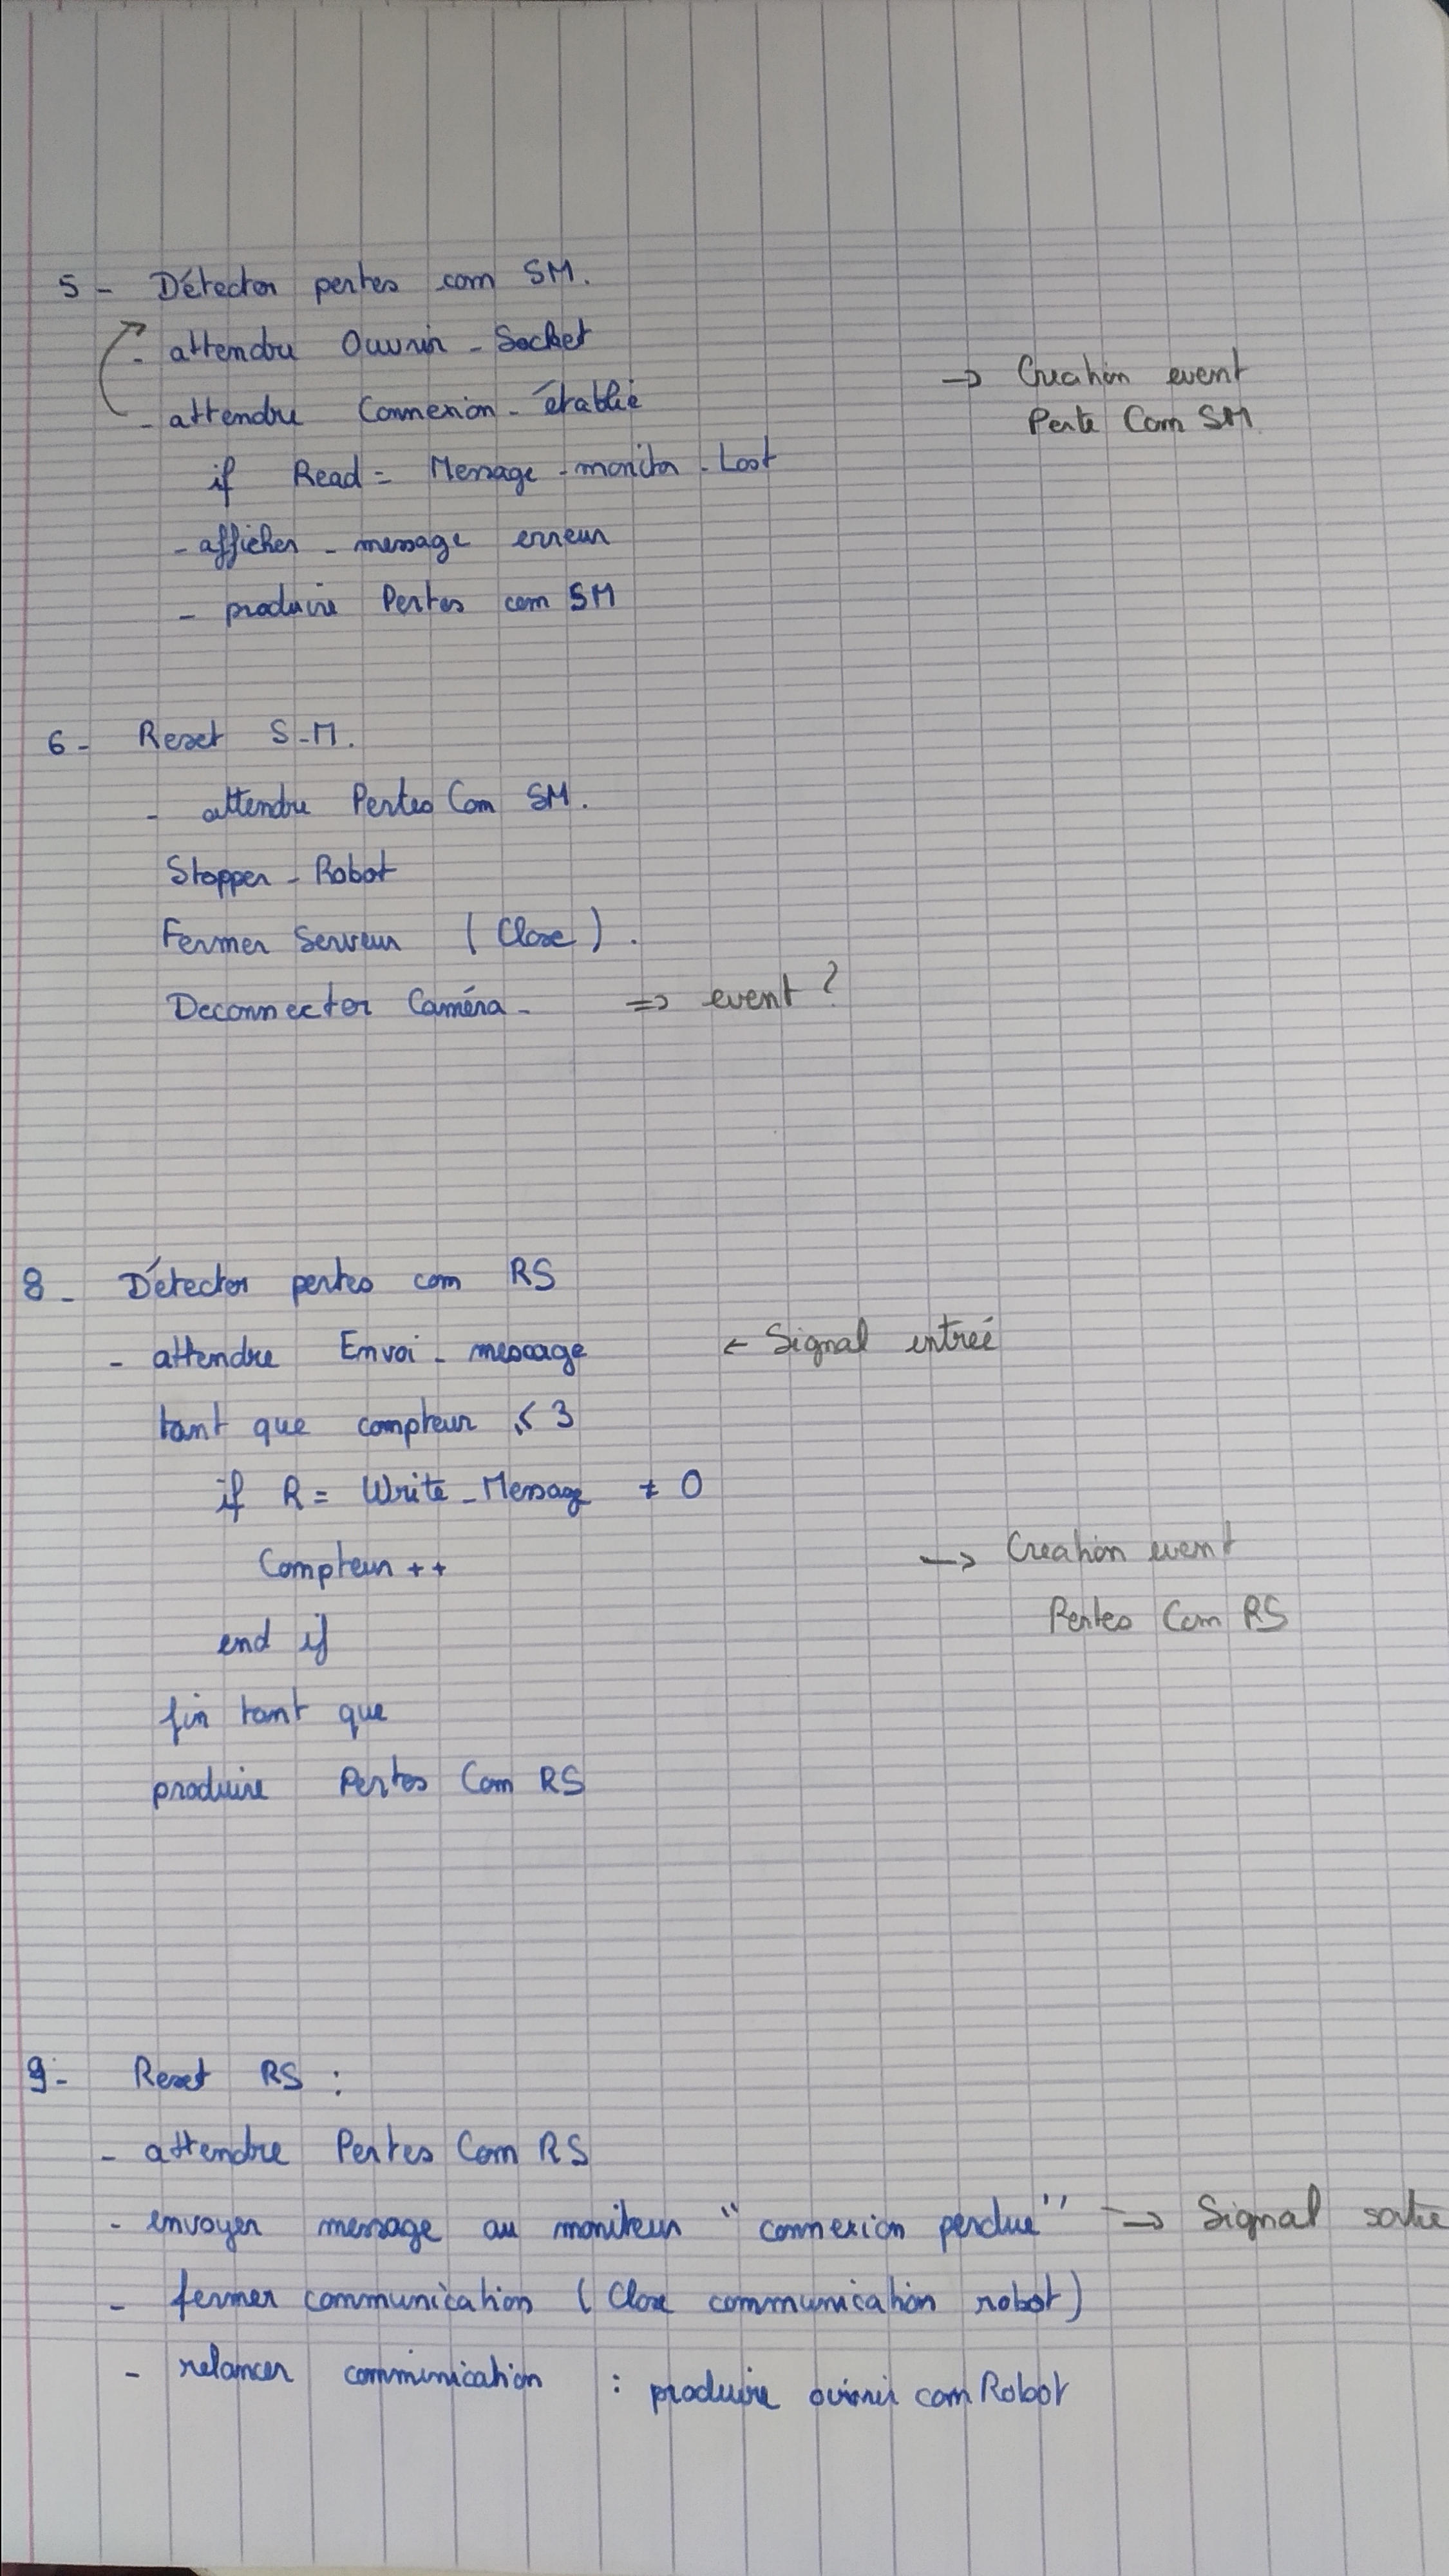 5 - Détecter pertes com SM.
- attendre Ouvrir - Socket
→ Creation event
- attendre Connexion - établie
Perte Com SM
if Read = Message - monitor - Lost
- afficher - message erreur
- produire Pertes com SM
6 - Reset S-M.
- attendre Pertes Com SM.
Stopper - Robot
Fermer Serveur (Close).
Deconnecter Caméra - => event ?
8 - Détecter pertes com RS
- attendre Envoi - message ← Signal entreé
tant que compteur < 3
if R = Write - Message ≠ 0
Compteur ++
→ Creation event
Pertes Com RS
end if
fin tant que
produire Pertes Com RS
9 - Reset RS :
- attendre Pertes Com RS
- envoyer message au moniteur " connexion perdue " → Signal sortie
- fermer communication ( Close communication robot )
- relancer communication : produire ouvrir com Robot